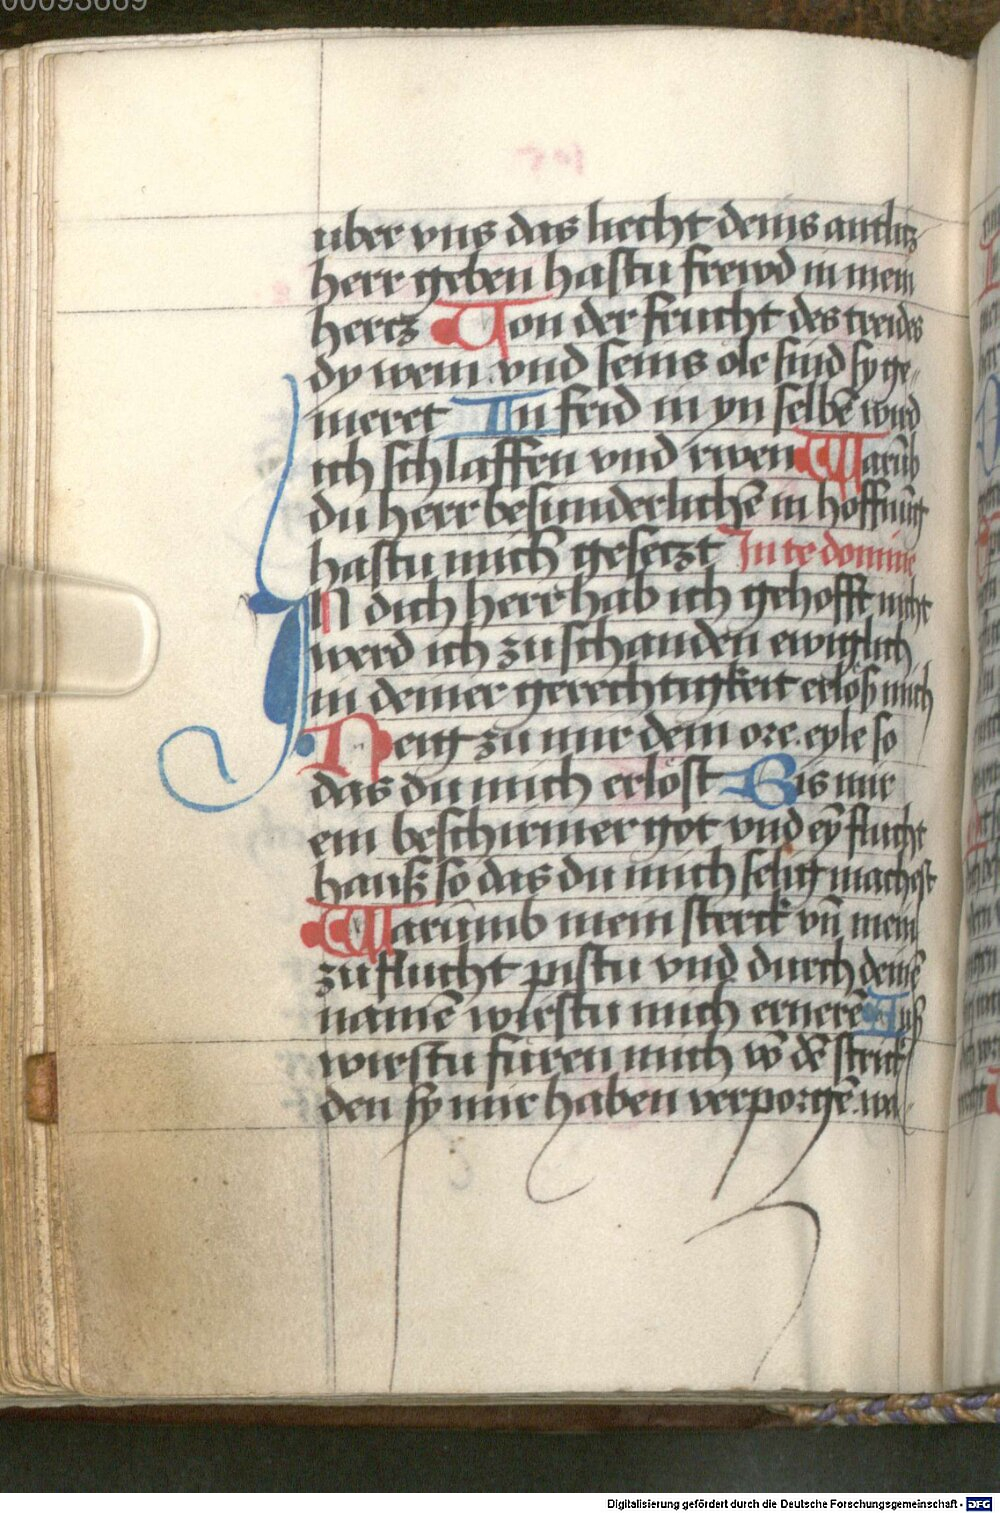 00093669
uber vns das liecht deins antlitz
herr geben hastu frewd in mein
hercz Von der frucht des treides
dy wein vnd seins öle sind sy ge„
meret In frid in yn selbē wird
ich schlaffen vnd rwen Warūb
du herr besunderlichē in hoffnūg
hastu mich gesetzt In te domine
IN dich herr hab ich gehofft nicht
werd ich zu schanden ewiglich
in deiner gerechtigkeit erlöß mich
Neig zu mir dein ore. eyle so
das du mich erlöst Bis mir
ein beschirmer got vnd eȳ flucht
hauß so das du mich selig machest
Warūmb mein sterck vn̄ mein
zuflucht pistu vnd durch deinē
namē wirstu mich ernerē Auß
wirstu füren mich vō dē strick
den sy mir haben verporgē. wa„
Digitalisierung gefördert durch die Deutsche Forschungsgemeinschaft - DFG